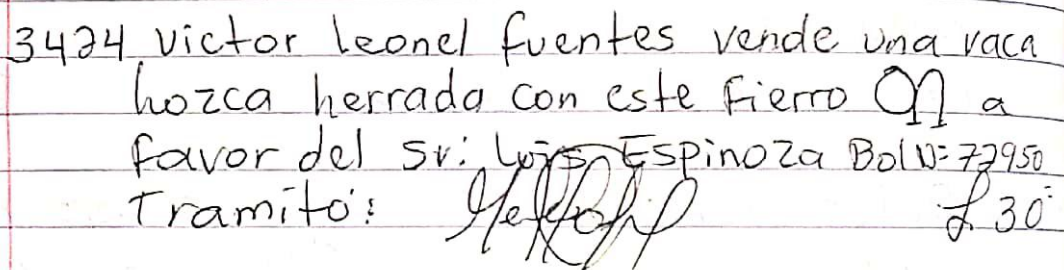 3424 Victor leonel fuentes vende una vaca
hozca herrada con este Fierro a
favor del Sr: Luis Espinoza Bol N: 72950
Tramito:
L 30